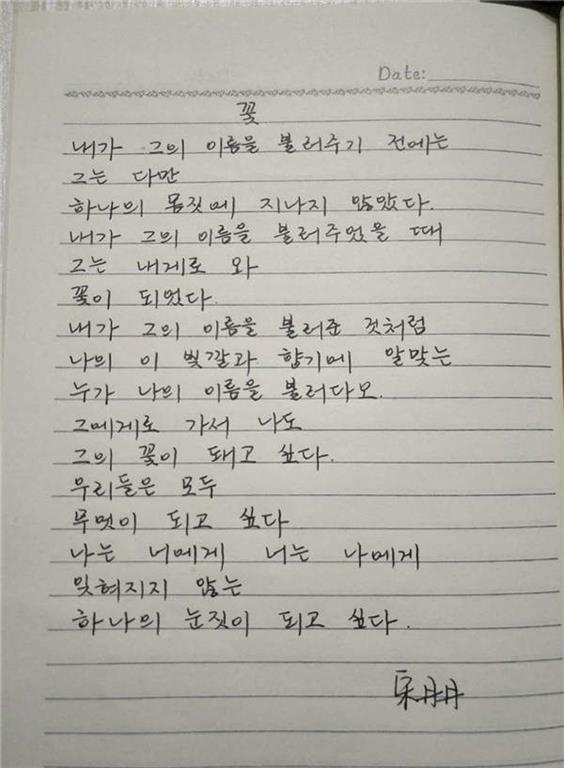 Date:
꽃
내가 그의 이름을 불러주기 전에는
그는 다만
하나의 몸짓에 지나지 않았다.
내가 그의 이름을 불러주었을 때
그는 내게로 와
꽃이 되었다.
내가 그의 이름을 불러준 것처럼
나의 이 빛깔과 향기에 알맞는
누가 나의 이름을 불러다오.
그에게로 가서 나도
그의 꽃이 돼고 싶다.
우리들은 모두
무엇이 되고 싶다
나는 너에게 너는 나에게
잊혀지지 않는
하나의 눈짓이 되고 싶다.